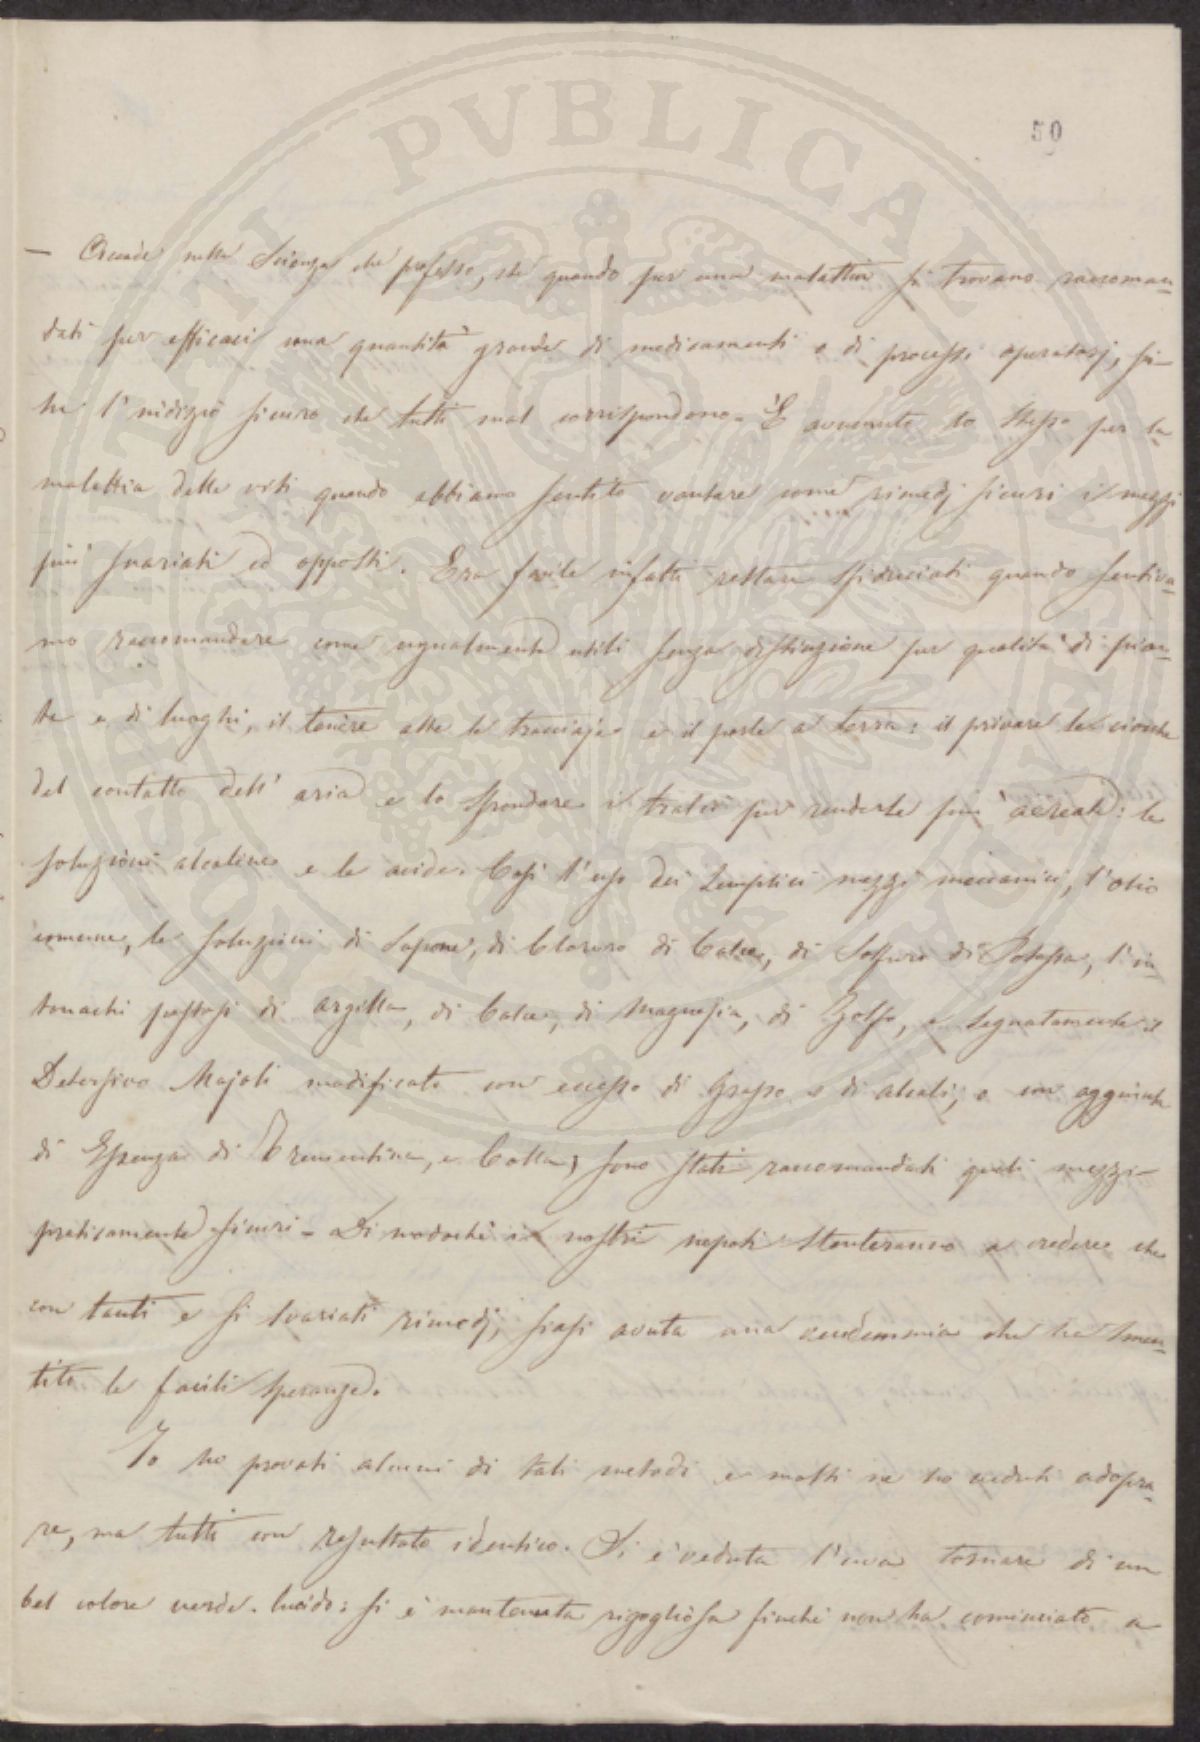 50
— Accade nella Scienza che professo, che quando per una malattia si trovano raccoman-
dati per efficaci una quantità grande di medicamenti e di processi operatorj, si
ha l'indizio sicuro che tutti mal corrispondono. È avvenuto lo stesso per la
malattia delle viti quando abbiamo sentito vantare come rimedj sicuri i mezzi
più svariati ed opposti. Era facile infatti restare sfiduciati quando sentiva-
mo raccomandare come ugualmente utili senza distinzione per qualità di pian-
te e di luoghi, il tenere alte le tracciaje e il porle a terra: il privare le ciocche
del contatto dell'aria e lo sfrondare i tralci per renderle più aereate: le
soluzioni alcaline e le acide. Così l'uso dei semplici mezzi meccanici, l'olio
comune, le soluzioni di Sapone, di Cloruro di Calce, di Solfuro di Potassa, l'in-
tonachi pastosi di argilla, di Calce, di Magnesia, di Zolfo, e segnatamente il
Detersivo Majoli modificato con eccesso di Grasso e di alcali, o con aggiunta
di Essenza di Trementina, e Colla, sono stati raccomandati quali mezzi
praticamente sicuri. Di modochè i nostri nepoti stenteranno a credere che
con tanti e sì svariati rimedj, siasi avuta una vendemmia che ha smen-
tito le facili speranze.
Io ho provati alcuni di tali metodi e molti ne ho veduti adopra-
re, ma tutti con resultato identico. Si è veduta l'uva tornare di un
bel colore verde. lucido: si è mantenuta rigogliosa finchè non ha cominciato a
PVBLICAE